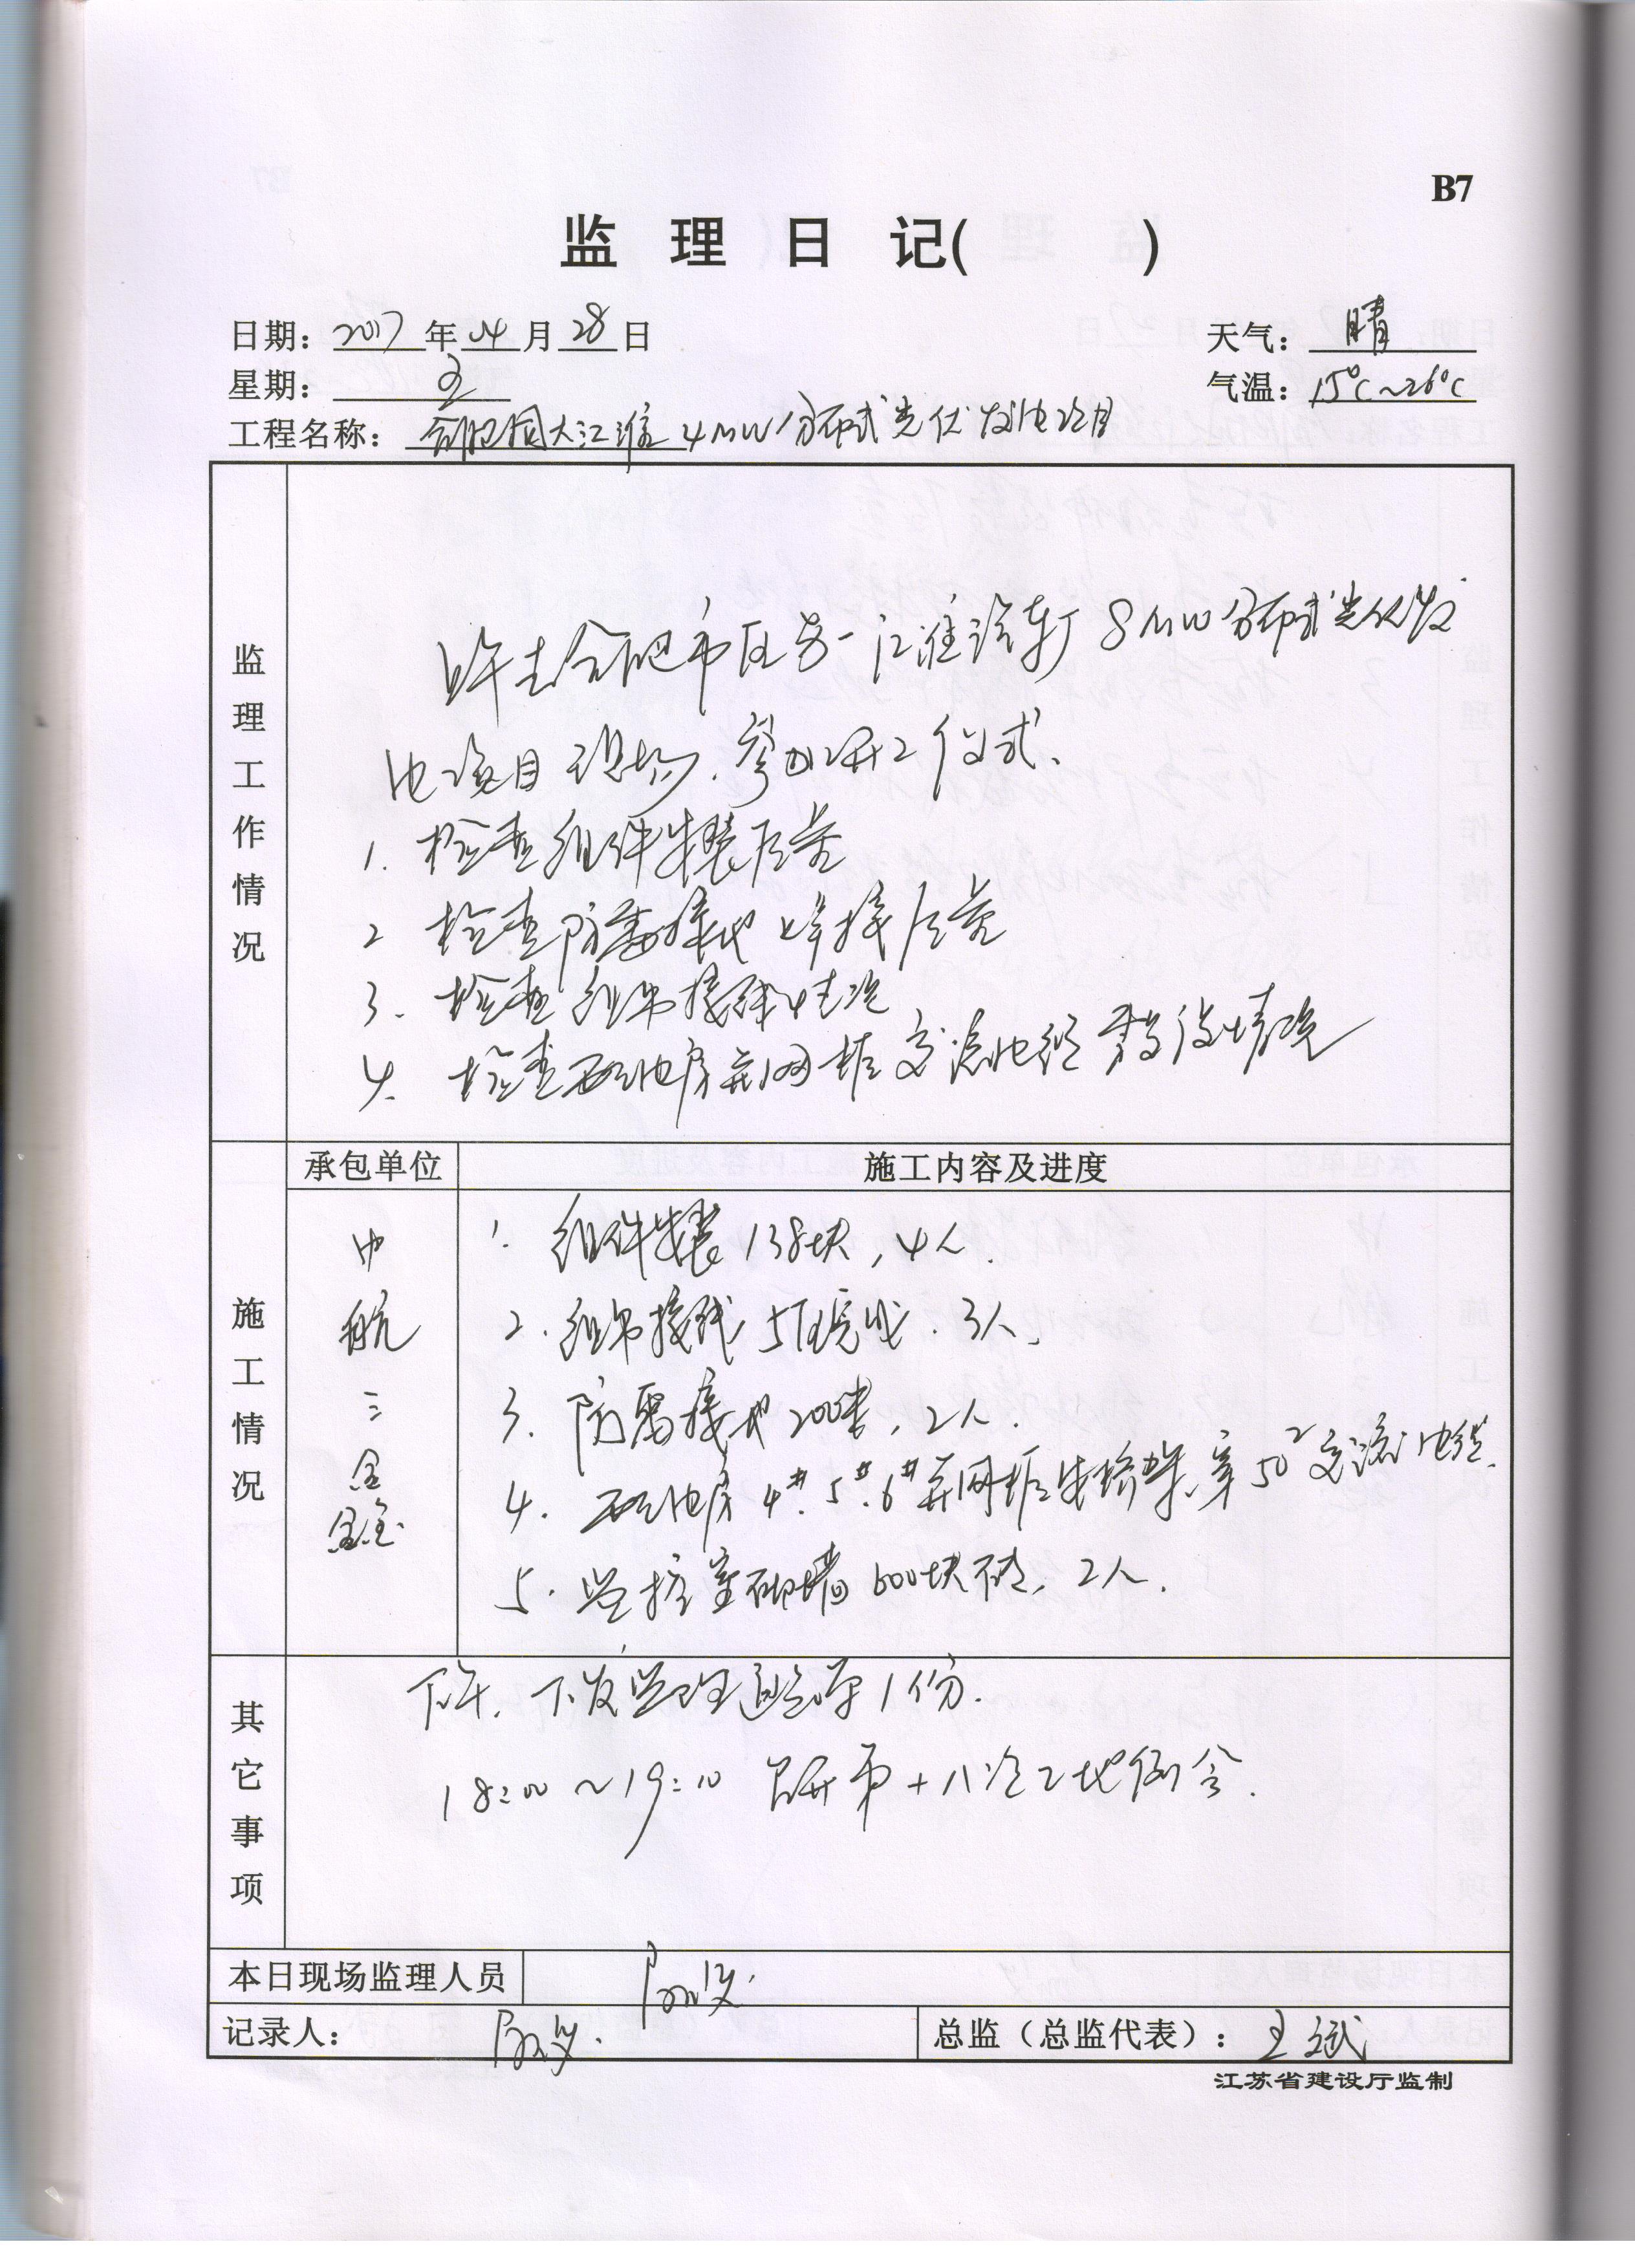 B7
监理日记(    )
日期: 2017 年 04 月 28 日 天气: 晴
星期: 五 气温: 15℃~26℃
工程名称: 合肥国大江淮4MW分布式光伏发电项目
监理工作情况
上午去合肥市区另一江淮汽车厂8MW分布式光伏发
电项目现场、参加开工仪式、
1. 检查组件安装质量
2 检查防雷接地焊接质量
3. 检查组串接线情况
4. 检查配电房并网柜交流电缆敷设情况
承包单位 施工内容及进度
施工情况
中航三鑫
1. 组件安装138块,4人.
2. 组串接线5区完成.3人、
3. 防雷接地200米,2人.
4. 配电房4#、5#、6#并网柜安桥架、穿50²交流电缆.
5. 监控室砌墙600块砖,2人.
其它事项
下午、下发监理通知单1份.
18:00~19:10 召开第十八次工地例会.
本日现场监理人员
记录人: 总监(总监代表): 王斌
江苏省建设厅监制